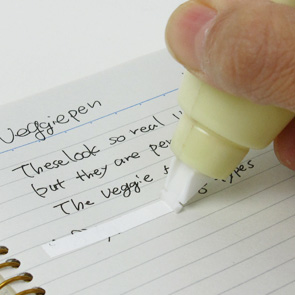 Veggiepen
These look so real
but they are
The veggie